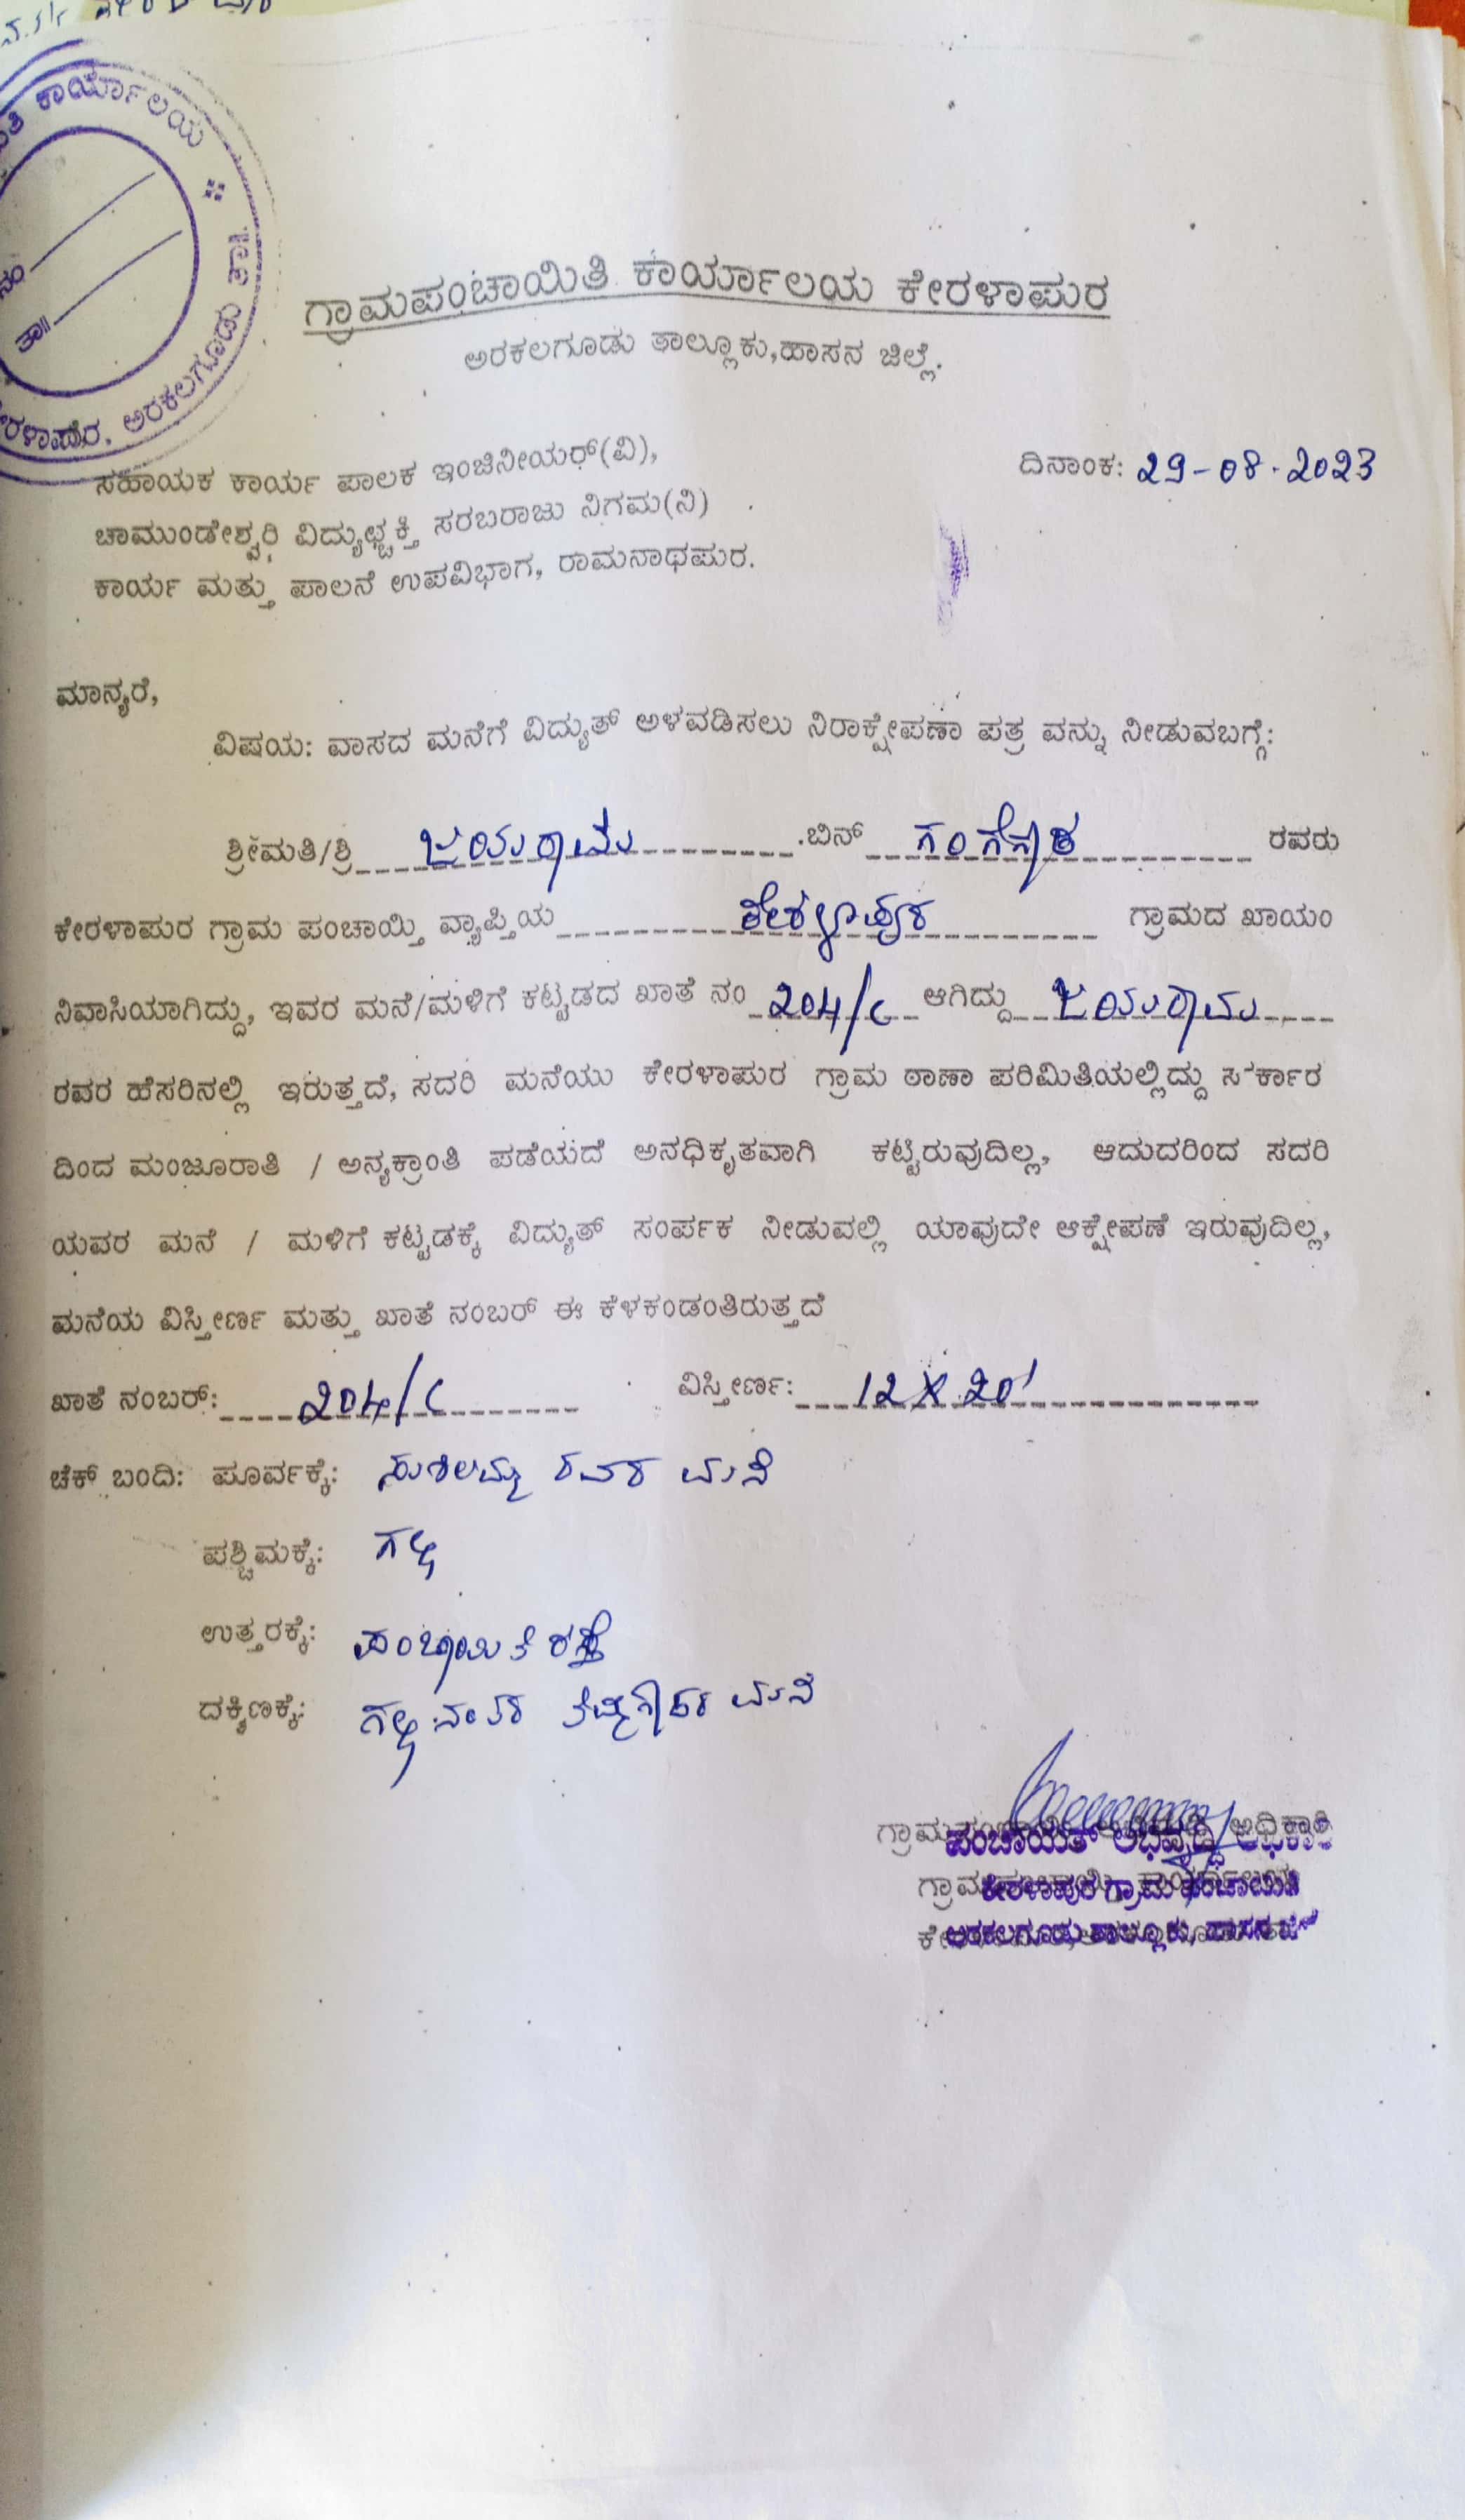 ಕಾರ್ಯಾಲಯ
ನಂ
ತಾ॥
ಅರಕಲಗೂಡು ತಾ॥
ಗ್ರಾಮಪಂಚಾಯಿತಿ ಕಾರ್ಯಾಲಯ ಕೇರಳಾಪುರ
ಅರಕಲಗೂಡು ತಾಲ್ಲೂಕು,ಹಾಸನ ಜಿಲ್ಲೆ.
ದಿನಾಂಕ: 29-08-2023
ಸಹಾಯಕ ಕಾರ್ಯ ಪಾಲಕ ಇಂಜಿನೀಯರ್(ವಿ),
ಚಾಮುಂಡೇಶ್ವರಿ ವಿದ್ಯುಚ್ಛಕ್ತಿ ಸರಬರಾಜು ನಿಗಮ(ನಿ)
ಕಾರ್ಯ ಮತ್ತು ಪಾಲನೆ ಉಪವಿಭಾಗ, ರಾಮನಾಥಪುರ.
ಮಾನ್ಯರೆ,
ವಿಷಯ: ವಾಸದ ಮನೆಗೆ ವಿದ್ಯುತ್ ಅಳವಡಿಸಲು ನಿರಾಕ್ಷೇಪಣಾ ಪತ್ರ ವನ್ನು ನೀಡುವಬಗ್ಗೆ:
ಶ್ರೀಮತಿ/ಶ್ರಿ ಜಯರಾಮ ಬಿನ್ ರವರು
ಕೇರಳಾಪುರ ಗ್ರಾಮ ಪಂಚಾಯ್ತಿ ವ್ಯಾಪ್ತಿಯ ಕೇರಳಾಪುರ ಗ್ರಾಮದ ಖಾಯಂ
ನಿವಾಸಿಯಾಗಿದ್ದು, ಇವರ ಮನೆ/ಮಳಿಗೆ ಕಟ್ಟಡದ ಖಾತೆ ನಂ 204/c ಆಗಿದ್ದು ಜಯರಾಮ
ರವರ ಹೆಸರಿನಲ್ಲಿ ಇರುತ್ತದೆ, ಸದರಿ ಮನೆಯು ಕೇರಳಾಪುರ ಗ್ರಾಮ ಠಾಣಾ ಪರಿಮಿತಿಯಲ್ಲಿದ್ದು ಸರ್ಕಾರ
ದಿಂದ ಮಂಜೂರಾತಿ / ಅನ್ಯಕ್ರಾಂತಿ ಪಡೆಯದೆ ಅನಧಿಕೃತವಾಗಿ ಕಟ್ಟಿರುವುದಿಲ್ಲ, ಆದುದರಿಂದ ಸದರಿ
ಯವರ ಮನೆ / ಮಳಿಗೆ ಕಟ್ಟಡಕ್ಕೆ ವಿದ್ಯುತ್ ಸಂರ್ಪಕ ನೀಡುವಲ್ಲಿ ಯಾವುದೇ ಆಕ್ಷೇಪಣೆ ಇರುವುದಿಲ್ಲ,
ಮನೆಯ ವಿಸ್ತೀರ್ಣ ಮತ್ತು ಖಾತೆ ನಂಬರ್ ಈ ಕೆಳಕಂಡಂತಿರುತ್ತದೆ
ಖಾತೆ ನಂಬರ್: 204/c ವಿಸ್ತೀರ್ಣ: 12X20'
ಚೆಕ್ ಬಂದಿ: ಪೂರ್ವಕ್ಕೆ: ರವರ ಮನೆ
ಪಶ್ಚಿಮಕ್ಕೆ: ಗಲ್ಲಿ
ಉತ್ತರಕ್ಕೆ: ಪಂಚಾಯಿತಿ ರಸ್ತೆ
ದಕ್ಷಿಣಕ್ಕೆ: ಗಲ್ಲಿ ನಂತರ ಮನೆ
ಪಂಚಾಯಿತ್ ಅಭಿವೃದ್ಧಿ ಅಧಿಕಾರಿ
ಕೇರಳಾಪುರ ಗ್ರಾಮ ಪಂಚಾಯಿತಿ
ಅರಕಲಗೂಡು ತಾಲ್ಲೂಕು, ಹಾಸನ ಜಿಲ್ಲೆ